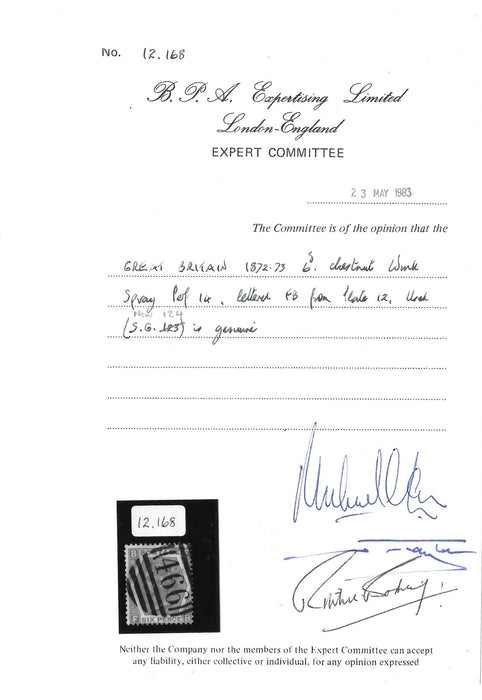 No. 12,168
B. P. A. Expertising Limited
London-England
EXPERT COMMITTEE
23 MAY 1983
The Committee is of the opinion that the
GREAT BRITAIN 1872-73 6d. chestnut Wmk
Spray Perf 14, lettered FB from Plate 12, Used
Now 124
(S.G. 123) is genuine
12,168
B
466
F SIX PENCE B
Neither the Company nor the members of the Expert Committee can accept
any liability, either collective or individual, for any opinion expressed